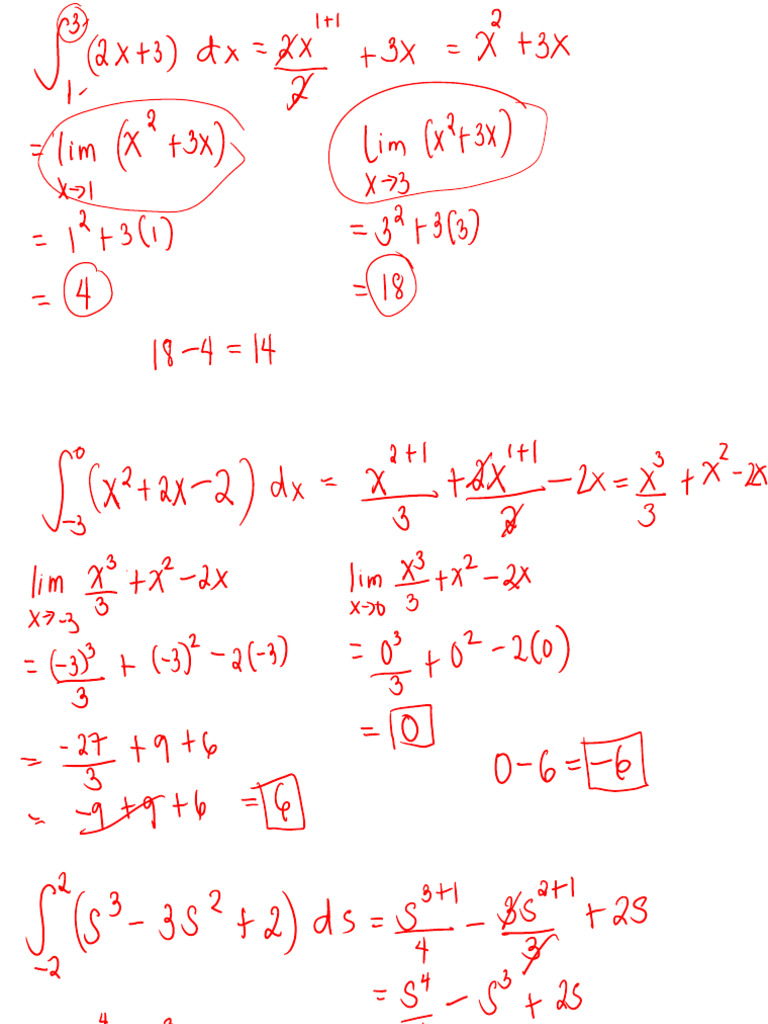 ∫₁³ (2x+3) dx = 2x¹⁺¹/2 + 3x = x² + 3x
= lim x→1 (x² + 3x) lim x→3 (x² + 3x)
= 1² + 3(1) = 3² + 3(3)
= 4 = 18
18 - 4 = 14
∫₋₃⁰ (x² + 2x - 2) dx = x²⁺¹/3 + 2x¹⁺¹/2 - 2x = x³/3 + x² - 2x
lim x→-3 x³/3 + x² - 2x lim x→0 x³/3 + x² - 2x
= (-3)³/3 + (-3)² - 2(-3) = 0³/3 + 0² - 2(0)
= -27/3 + 9 + 6 = 0 0 - 6 = -6
= -9 + 9 + 6 = 6
∫₋₂² (s³ - 3s² + 2) ds = s³⁺¹/4 - 3s²⁺¹/3 + 2s
= s⁴/4 - s³ + 2s